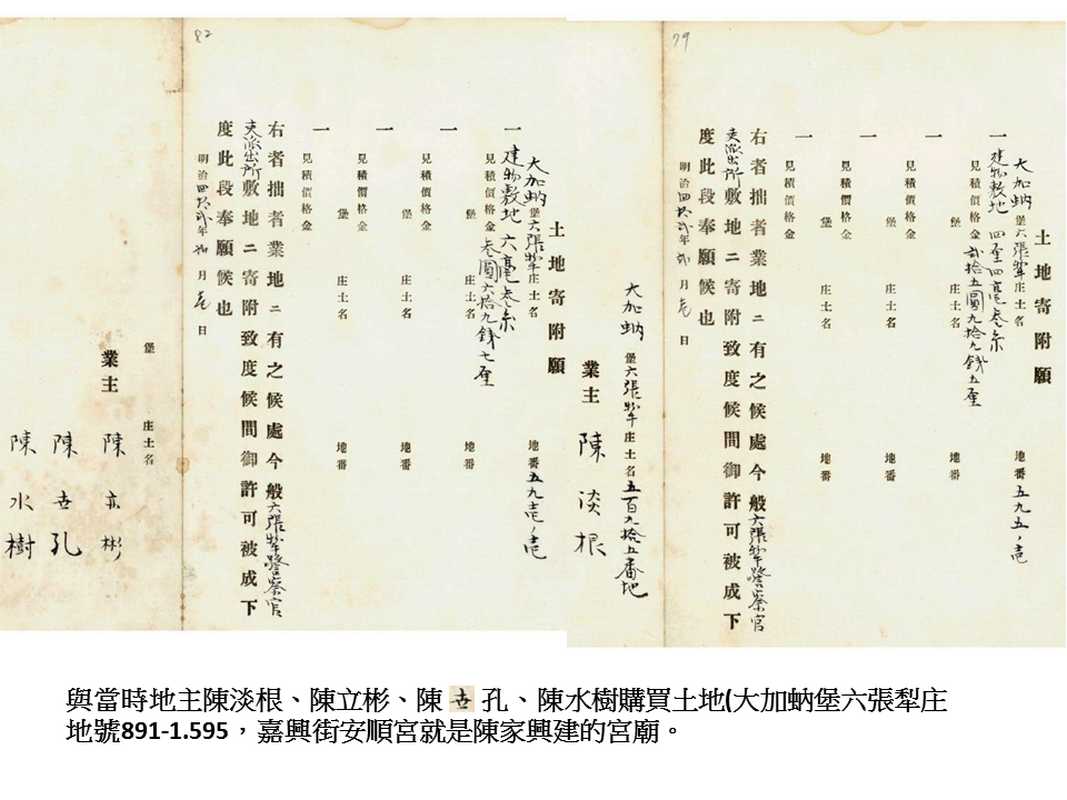 79
土地寄附願
大加蚋堡六張犂庄土名 地番五九五ノ壱
一 建物敷地 四厘四毫叁糸
見積價格金貳拾五圓九拾九錢五厘
一 堡 庄土名 地番
見積價格金
一 堡 庄土名 地番
見積價格金
一 堡 庄土名 地番
見積價格金
右者拙者業地ニ有之候處今般六張犂警察官
吏派出所敷地ニ寄附致度候間御許可被成下
度此段奉願候也
明治四拾貳年 月壱日
大加蚋堡六張犂庄土名五百九拾五番地
業主 陳淡根
82
土地寄附願
大加蚋堡六張犂庄土名 地番五九壱ノ壱
一 建物敷地 六毫叁糸
見積價格金叁圓六拾九錢七厘
一 堡 庄土名 地番
見積價格金
一 堡 庄土名 地番
見積價格金
一 堡 庄土名 地番
見積價格金
右者拙者業地ニ有之候處今般六張犂警察官
吏派出所敷地ニ寄附致度候間御許可被成下
度此段奉願候也
明治四拾貳年 月壱日
堡 庄土名
業主 陳立彬
陳 孔
陳水樹
與當時地主陳淡根、陳立彬、陳 孔、陳水樹購買土地(大加蚋堡六張犁庄
地號891-1.595，嘉興街安順宮就是陳家興建的宮廟。